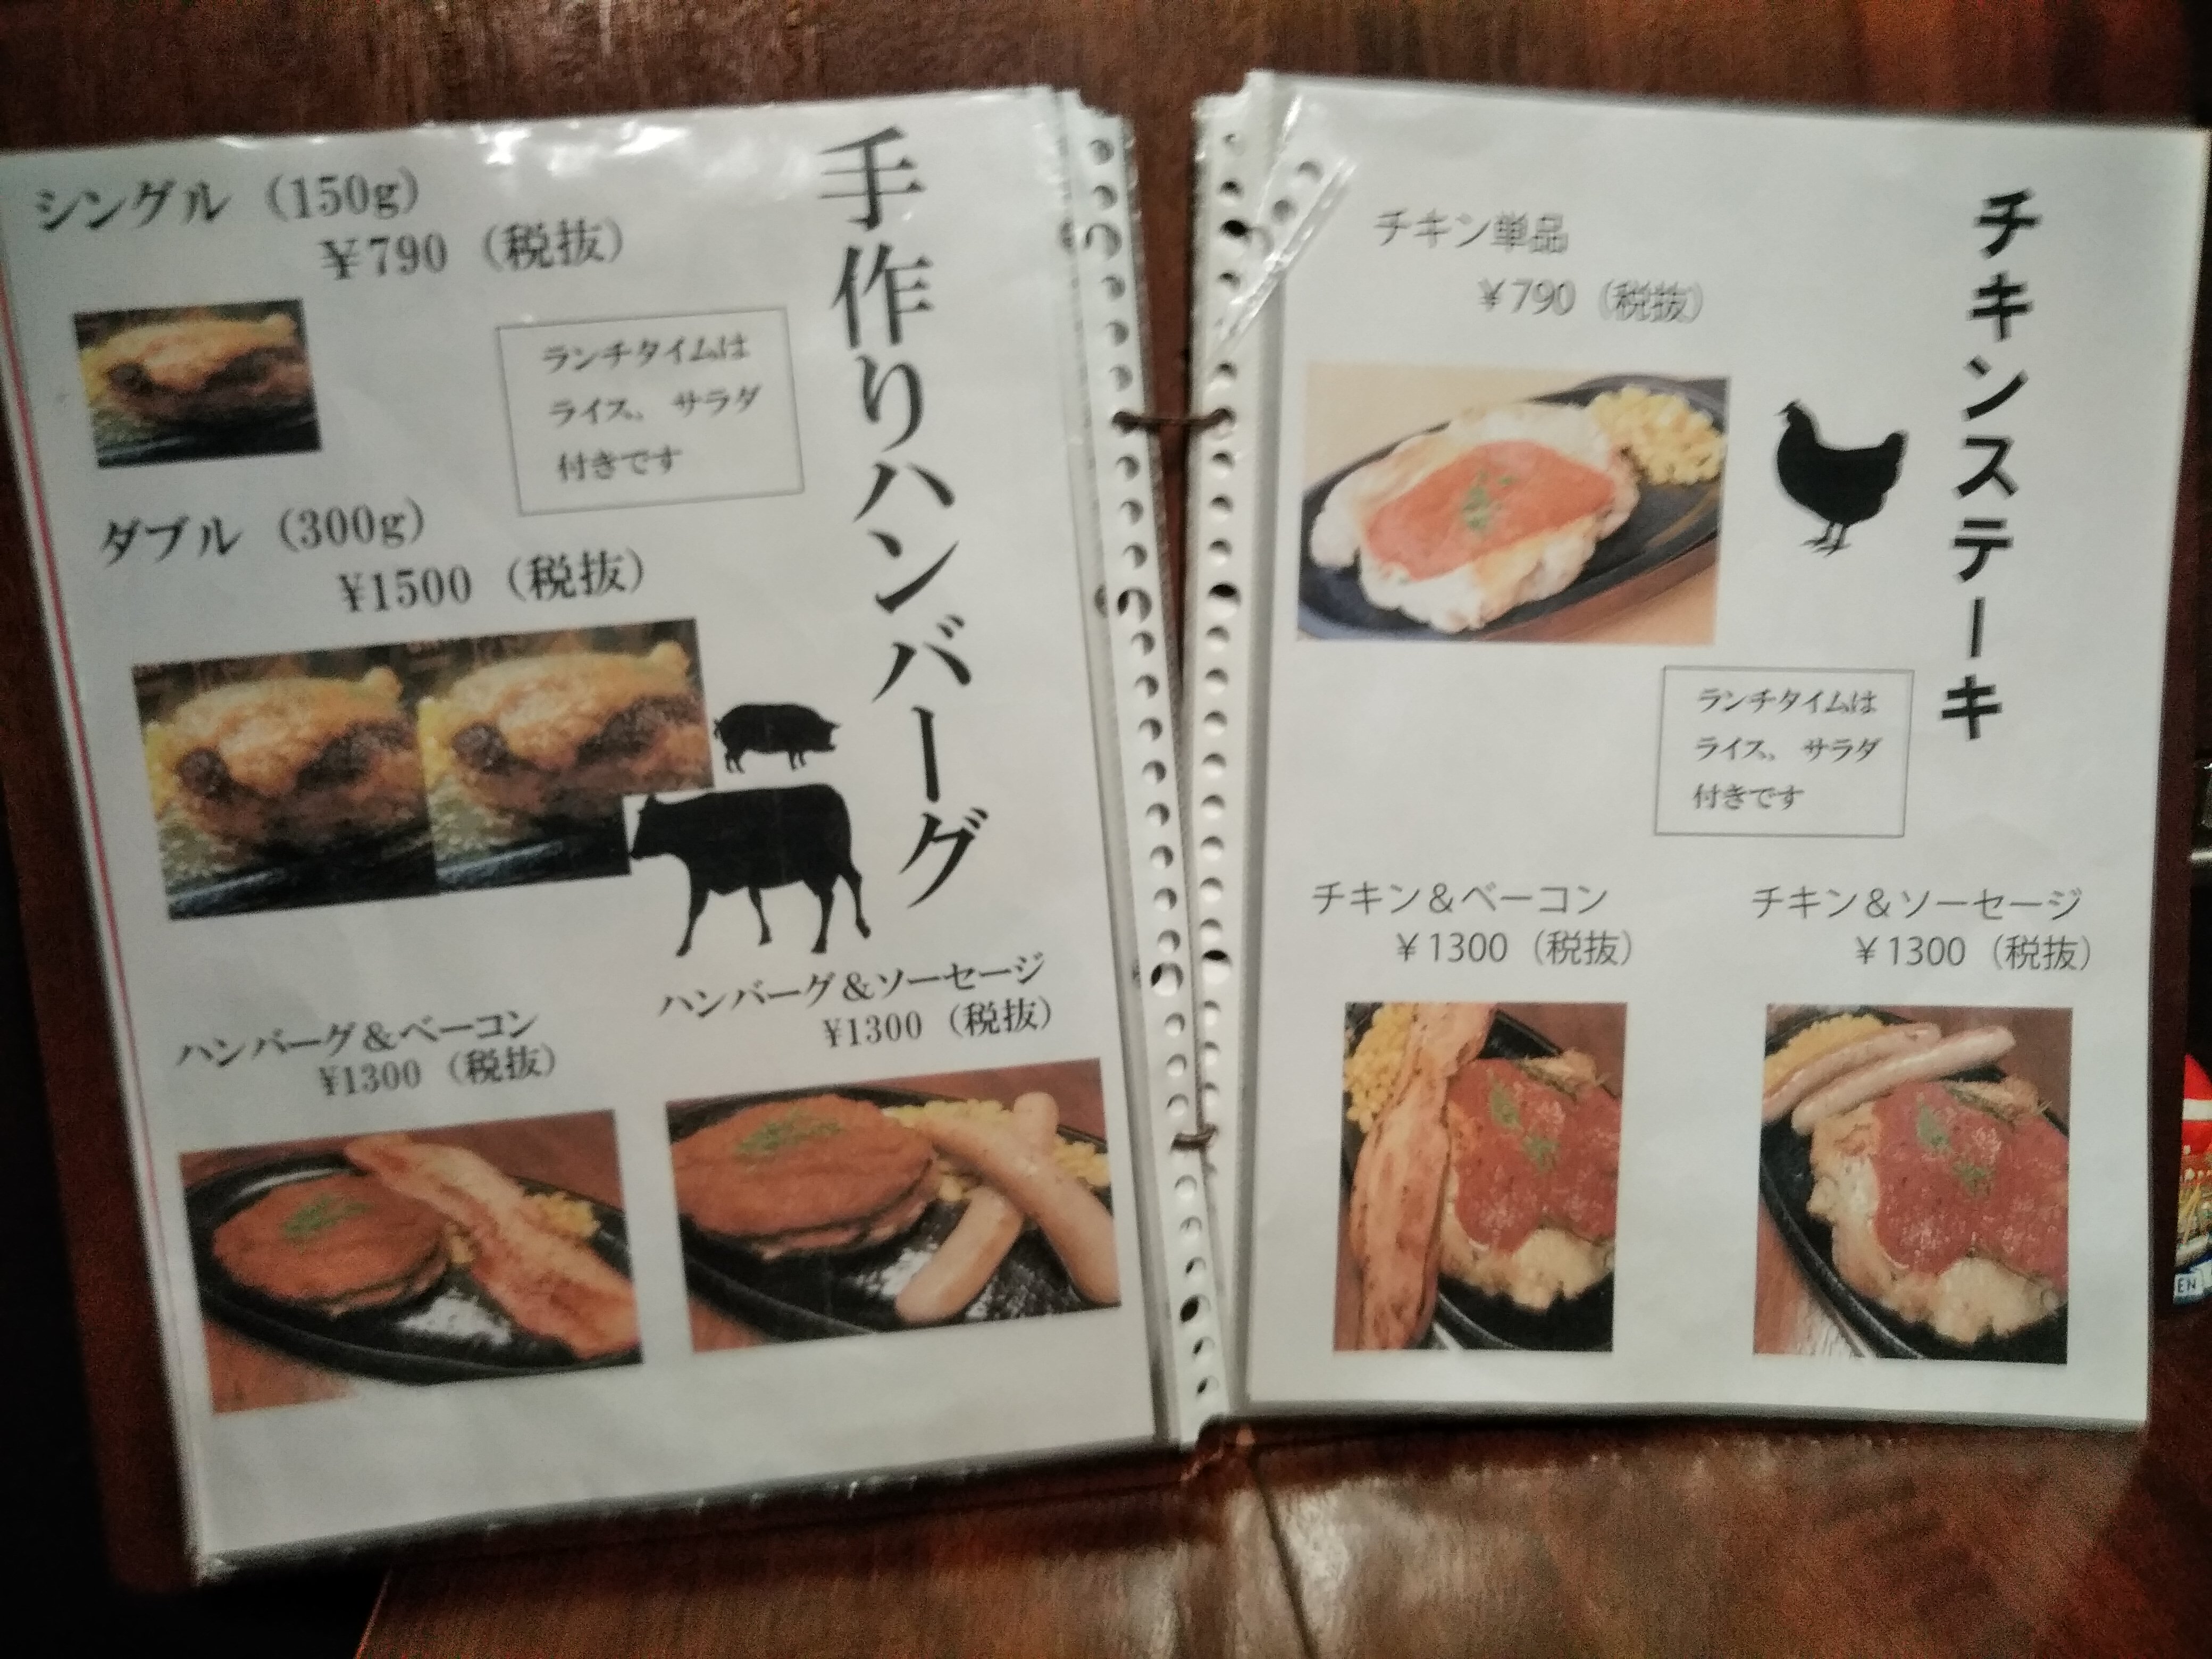 手作りハンバーグ
シングル (150g)
￥790 (税抜)
ランチタイムは
ライス、サラダ
付きです
ダブル (300g)
¥1500 (税抜)
ハンバーグ＆ベーコン
¥1300 (税抜)
ハンバーグ＆ソーセージ
¥1300 (税抜)
チキンステーキ
チキン単品
￥790 (税抜)
ランチタイムは
ライス、サラダ
付きです
チキン＆ベーコン
￥1300 (税抜)
チキン＆ソーセージ
￥1300 (税抜)
EN